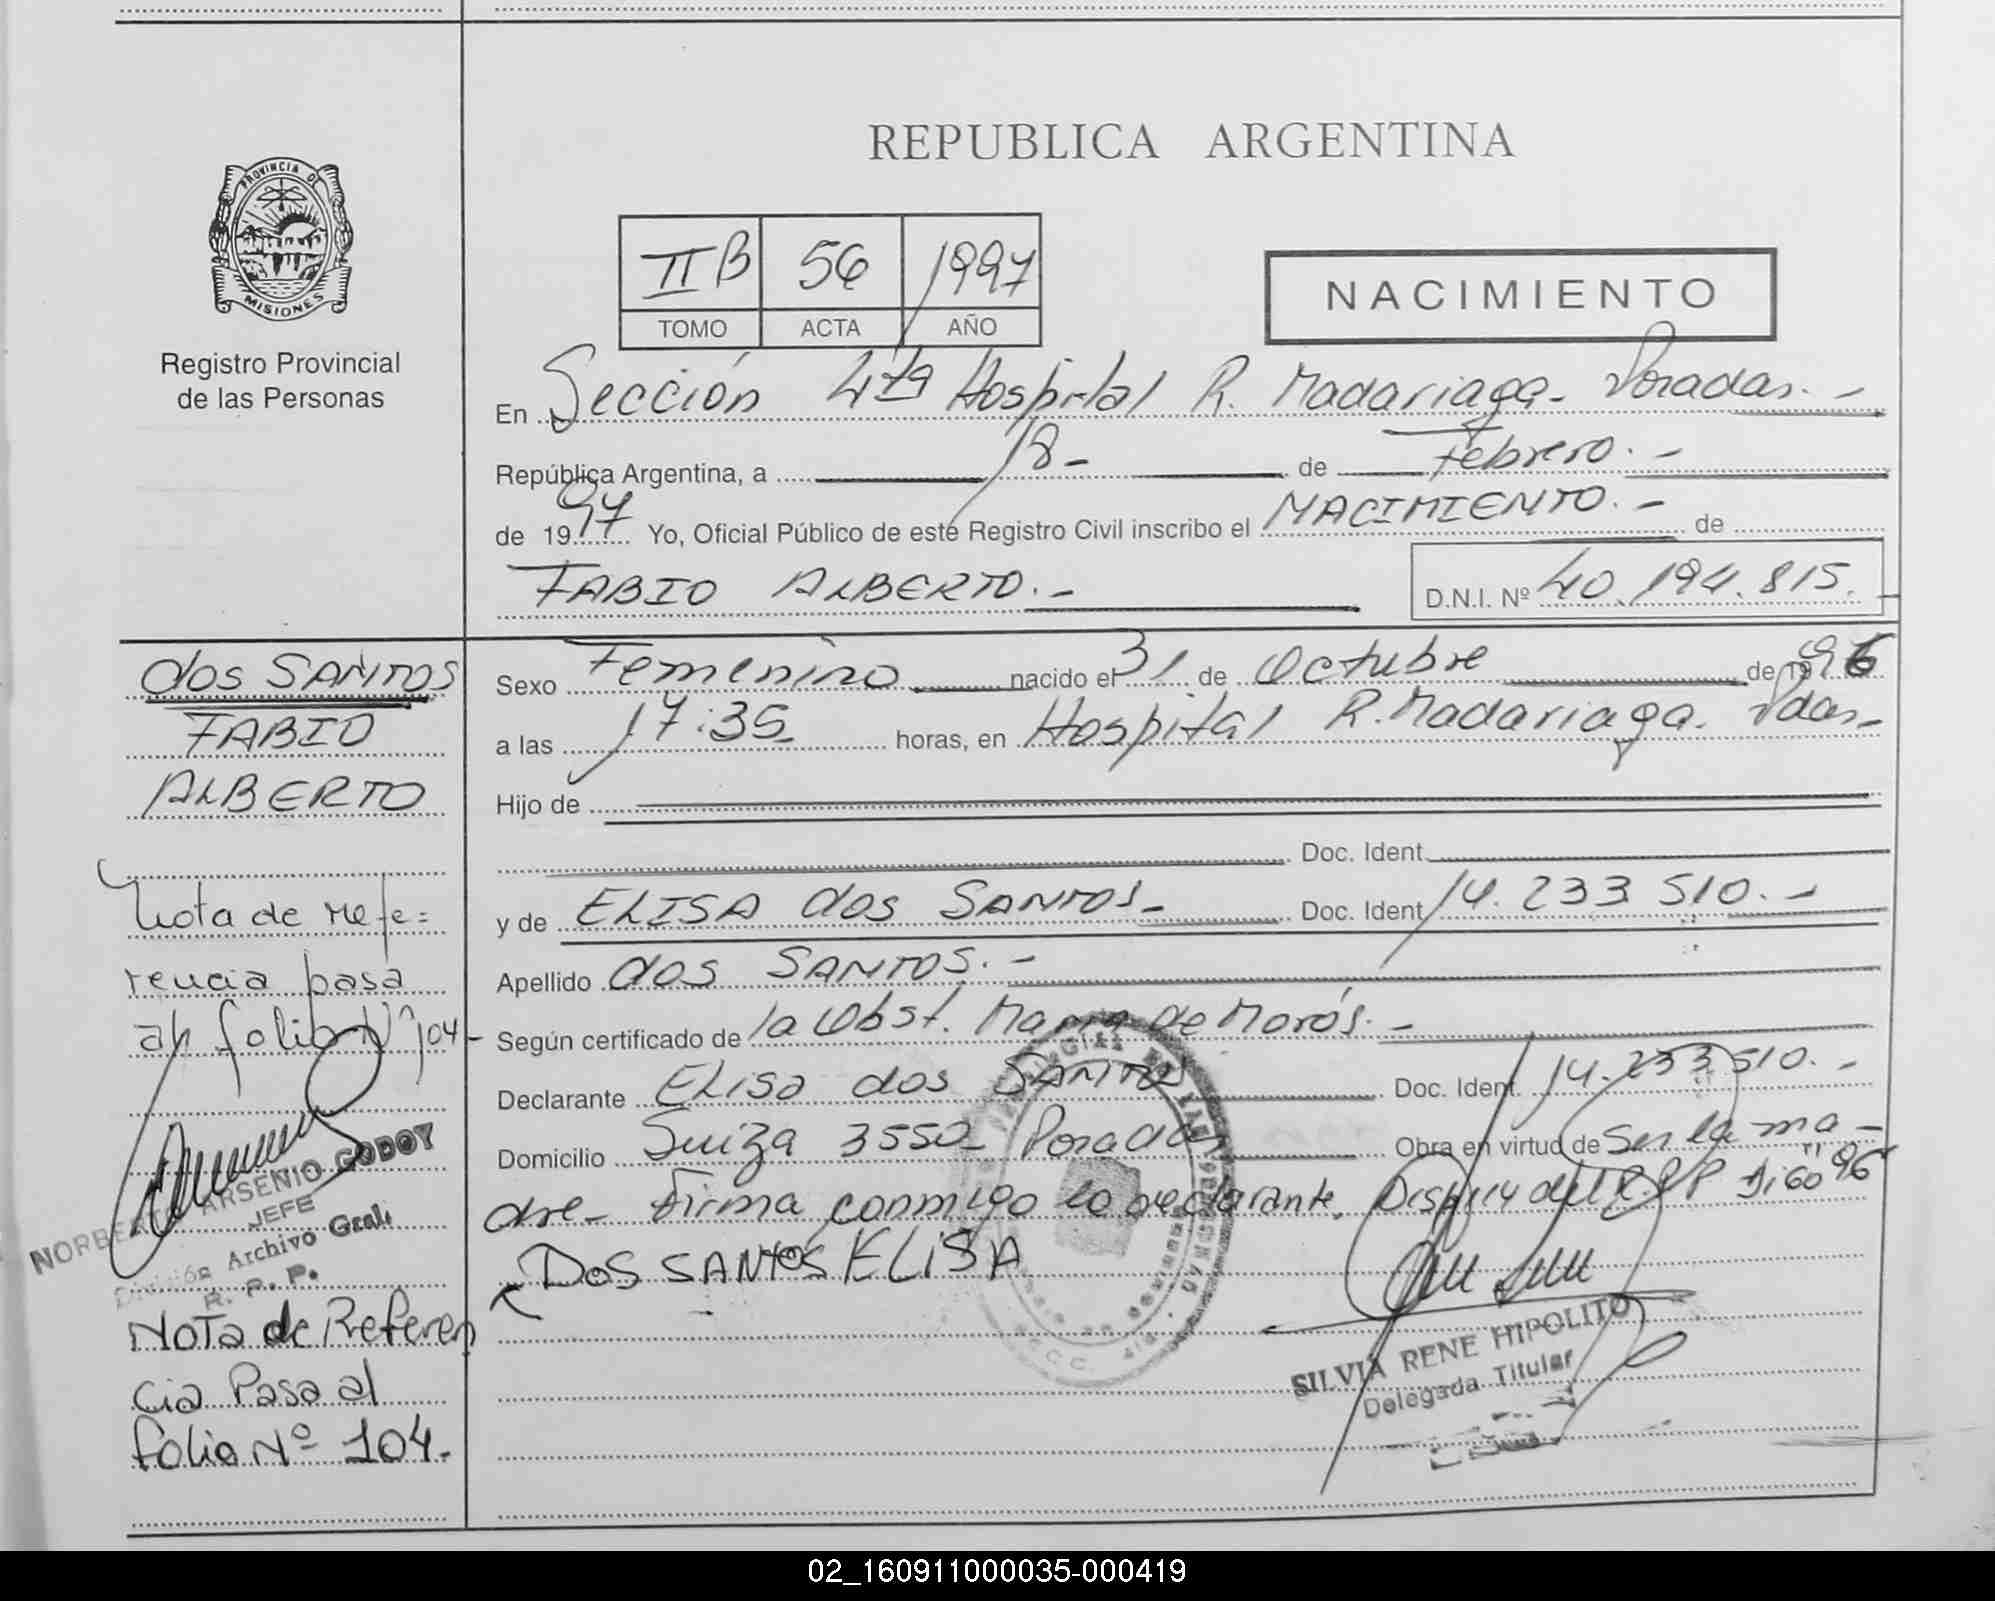 REPUBLICA ARGENTINA
PROVINCIA DE
MISIONES
Registro Provincial
de las Personas
II B 56 1997
TOMO ACTA AÑO
NACIMIENTO
En Sección 4ta Hospital R. Madariaga - Posadas. -
República Argentina, a 18 - de Febrero. -
de 1997 Yo, Oficial Público de este Registro Civil inscribo el NACIMIENTO. - de
FABIO ALBERTO. - D.N.I. Nº 40.194.815.
dos SANTOS
FABIO
ALBERTO
Nota de refe=
rencia pasa
al folio Nº 104 -
NORBERTO ARSENIO GODOY
JEFE
División Archivo Gral.
R. P. P.
Nota de Referen
cia Pasa al
folio Nº 104.
Sexo Femenino nacido el 31 de Octubre de 1996
a las 17:35 horas, en Hospital R. Madariaga. Pdas -
Hijo de
Doc. Ident.
y de ELISA dos SANTOS - Doc. Ident 14.233.510. -
Apellido dos SANTOS. -
Según certificado de la Obst. Maria de Morós. -
Declarante ELisa dos SANTOS Doc. Ident. 14.233.510. -
Domicilio Suiza 3550 - Posadas Obra en virtud de Ser la ma -
dre - Firma conmigo la declarante.
DOS SANTOS ELISA
SILVIA RENE HIPOLITO
Delegada Titular
02_160911000035-000419